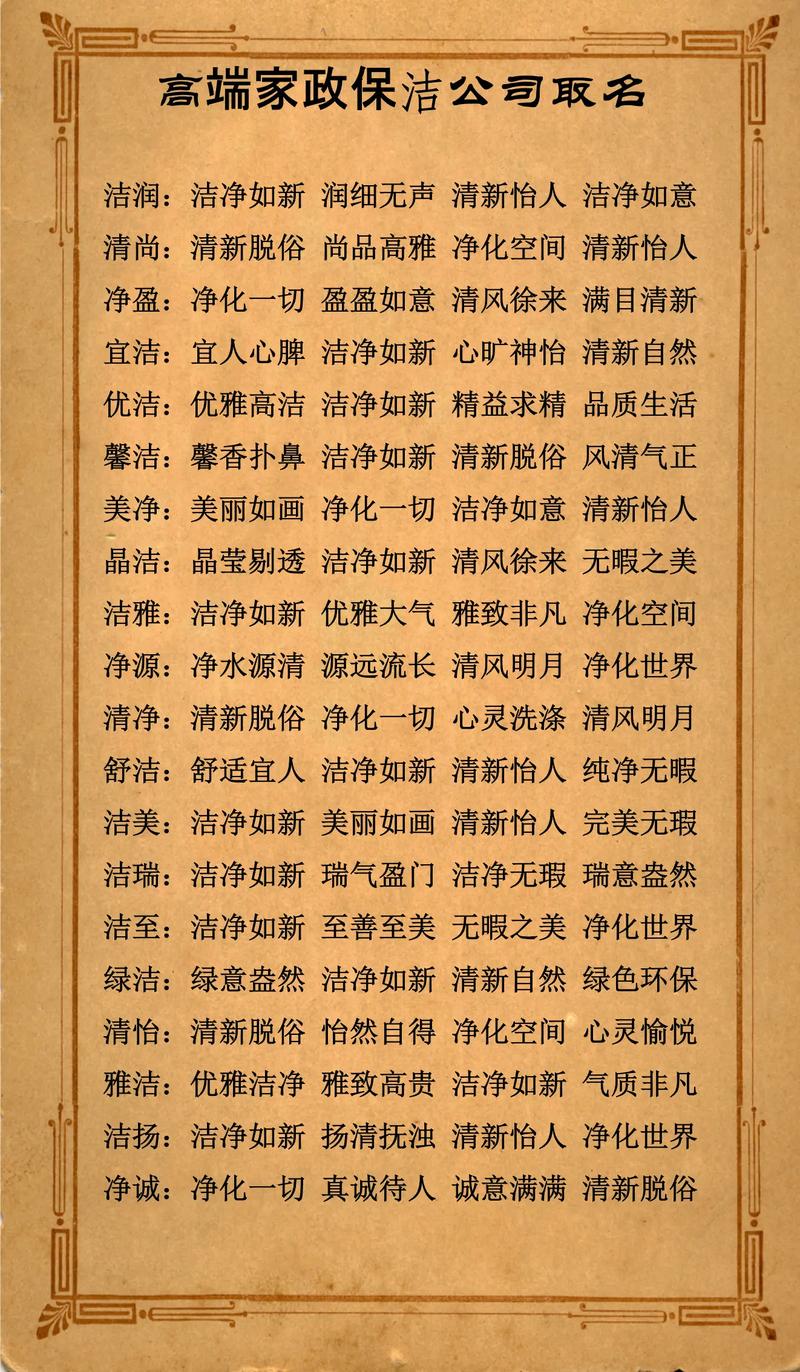 高端家政保洁公司取名
洁润：洁净如新 润细无声 清新怡人 洁净如意
清尚：清新脱俗 尚品高雅 净化空间 清新怡人
净盈：净化一切 盈盈如意 清风徐来 满目清新
宜洁：宜人心脾 洁净如新 心旷神怡 清新自然
优洁：优雅高洁 洁净如新 精益求精 品质生活
馨洁：馨香扑鼻 洁净如新 清新脱俗 风清气正
美净：美丽如画 净化一切 洁净如意 清新怡人
晶洁：晶莹剔透 洁净如新 清风徐来 无暇之美
洁雅：洁净如新 优雅大气 雅致非凡 净化空间
净源：净水源清 源远流长 清风明月 净化世界
清净：清新脱俗 净化一切 心灵洗涤 清风明月
舒洁：舒适宜人 洁净如新 清新怡人 纯净无暇
洁美：洁净如新 美丽如画 清新怡人 完美无瑕
洁瑞：洁净如新 瑞气盈门 洁净无瑕 瑞意盎然
洁至：洁净如新 至善至美 无暇之美 净化世界
绿洁：绿意盎然 洁净如新 清新自然 绿色环保
清怡：清新脱俗 怡然自得 净化空间 心灵愉悦
雅洁：优雅洁净 雅致高贵 洁净如新 气质非凡
洁扬：洁净如新 扬清抚浊 清新怡人 净化世界
净诚：净化一切 真诚待人 诚意满满 清新脱俗